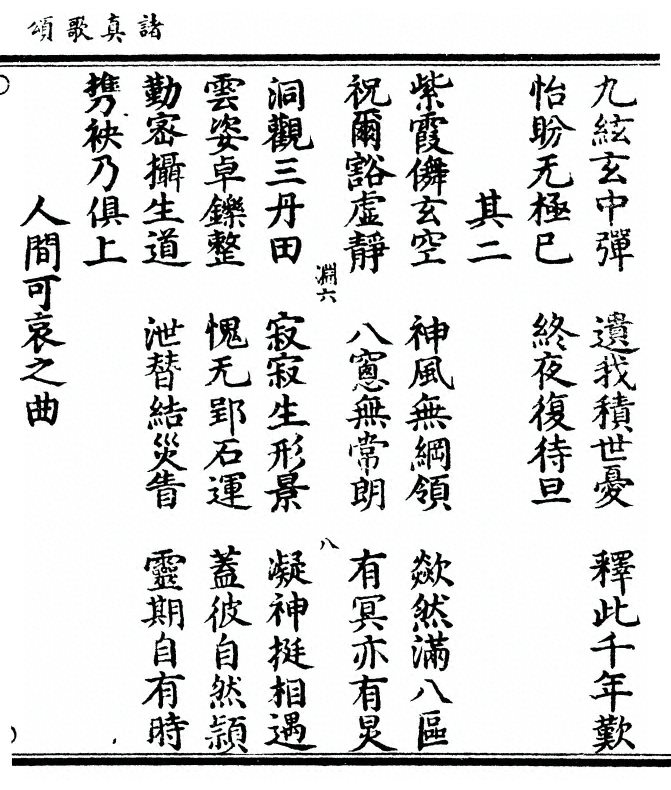 諸真歌頌
九絃玄中彈 遺我積世憂 釋此千年歎
怡盼无極已 終夜復待旦
其二
紫霞儛玄空 神風無綱領 歘然滿八區
祝爾豁虛靜 八窻無常朗 有冥亦有炅
淵六 八
洞觀三丹田 寂寂生形景 凝神挺相遇
雲姿卓鑠整 愧无郢石運 蓋彼自然穎
勤密攝生道 泄替結災眚 靈期自有時
携袂乃俱上
人間可哀之曲